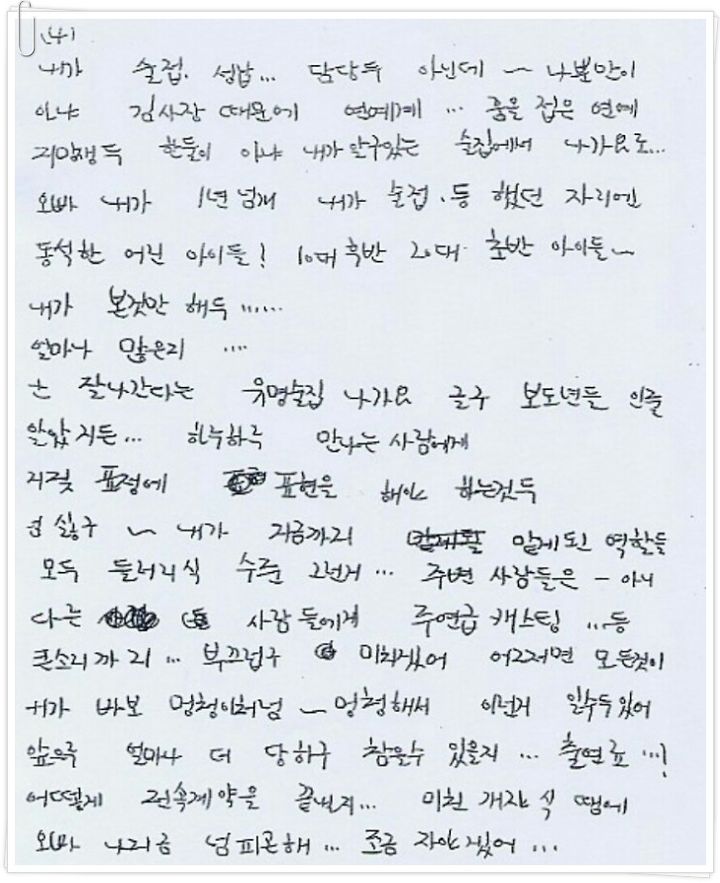 (4)
내가 술접. 성납... 담당두 아닌데 ~ 나뿐만이
아냐 김사장 때문에 연예계 ... 꿈을 접은 연예
지망생두 한둘이 아냐 내가 알구있는 술집에서 나가요로...
오빠 내가 1년 넘게 내가 술접.등 했던 자리엔
동석한 어린 아이들! 10대 후반 20대 초반 아이들~
내가 본것만 해두 ......
얼마나 많은지 ....
잘나간다는 유명술집 나가요 글구 보도년들 인줄
알았지든... 하루하루 만나는 사람에게
표정에 표현을 해야 하는것두
싫구 ~ 내가 지금까지 맡게된 역할들
모두 들러리식 수준 그런거 ... 주변 사람들은 - 아니
다른 사람들에게 주연급 캐스팅 ...등
큰소리까지 ... 부끄럽구 미치겠어 어쩌면 모든것이
내가 바보 멍청이처럼 ~ 멍청해서 이런거 일수두있어
앞으루 얼마나 더 당하구 참을수 있을지 ... 출연료 ...!
어떻게 전속계약을 끝낼지... 미친 개자식 땜에
오빠 나지금 넘피곤해 ... 조금 자야겠어 ...